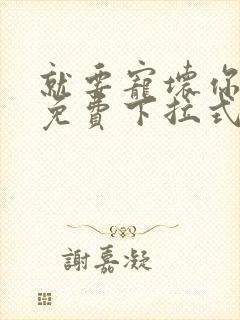 就要寵壞你
免費下拉式
謝嘉凝